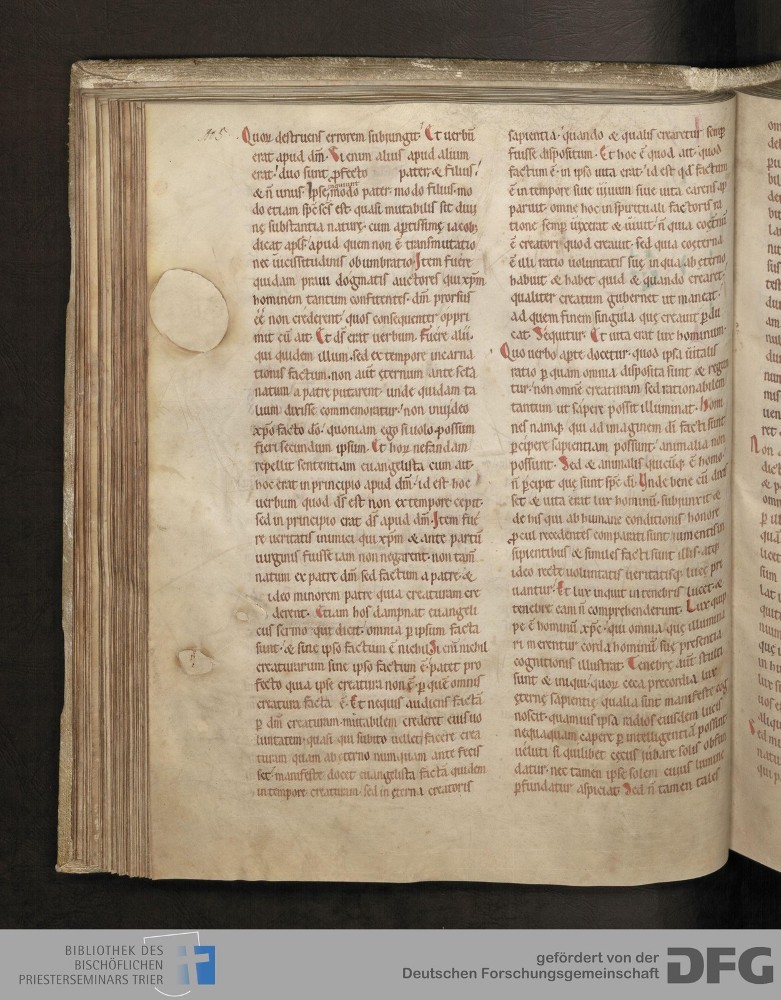 115
Quoꝝ destruens errorem subiungit. Et uerbū
erat apud dm̄. Si enim alius apud alium
erat. duo sunt ꝓfecto pater & filius.
& n̄ unus. Ipse manū modo pater. modo filius. mo
do etiam sp̄c s̄c̄s est. quasi mutabilis sit diui
nę substantia naturę. cum aptissimę iacob
dicat apl's. apud quem non ē transmutatio
nec uicissitudinis obumbratio. Item fuere
quidam praui dogmatis auctores qui xp̄m
hominem tantum confitentes. dm̄ prorsus
eē non crederent. quos consequenter oppri
mit cū ait. Et ds̄ erat uerbum. Fuere alii.
qui quidem illum. sed ex tempore incarna
tionis factum. non aut̄ ęternum ante scl̄a
natum a patre putarent. unde quidam ta
lium dixisse commemoratur. non inuideo
xp̄o facto dō. quoniam ego si uolo possum
fieri secundum ipsum. Et horꝝ nefandam
repellit sententiam euangelista cum ait.
hoc erat in principio apud dm̄. id est hoc
uerbum quod ds̄ est non ex tempore cepit.
sed in principio erat ds̄ apud dm̄. Item fue
re ueritatis inimici qui xp̄m & ante partū
uirginis fuisse iam non negarent. non tam̄
natum ex patre dm̄ sed factum a patre. &
ideo minorem patre quia creaturam cre
derent. Etiam hos dampnat euangeli
cus sermo qui dicit. omnia p ipsum facta
sunt. & sine ipso factum ē nichil. Si eni nichil
creaturarum sine ipso factum ē. patet pro
fecto quia ipse creatura non ē. p quē omnis
creatura facta ē. Et nequis audiens facta
p dm̄ creaturam. mutabilem crederet eius uo
luntatem. quasi qui subito uellet facere crea
turam quam ab ęterno numquam ante fecis
set. manifeste docet euangelista facta quidem
in tempore creaturam. sed in ęterna creatoris
sapientia. quando & qualis crearetur semp
fuisse dispositum. Et hoc ē quod ait. quod
factum ē. in ipso uita erat. id est qd̄ factum
ē in tempore siue uiuum siue uita carens ap
paruit. omne hoc in spirituali factoris ra
tione semp uixerat & uiuit. n̄ quia coęternū
ē creatori quod creauit. sed quia coęterna
ē illi ratio uoluntatis suę in qua ab ęterno
habuit & habet quid & quando crearet.
qualiter creatum gubernet ut maneat.
ad quem finem singula quę creauit pdu
cat. Sequitur. Et uita erat lux hominum.
Quo uerbo apte docetur. quod ipsa uitalis
ratio p quam omnia disposita sunt & regun
tur. non omnē creaturam sed rationabilem
tantum ut sapere possit illuminat. Homi
nes namq; qui ad imaginem di facti sunt
pcipere sapientiam possunt. animalia non
possunt. Sed & animalis quicūq; ē homo.
n̄ pcipit que sunt sp̄c di. Unde bene cū dixis
set & uita erat lux hominū. subiunxit &
de his qui ab humane conditionis honore
ꝓcul recedentes comparati sunt iumentis in
sipientibus & similes facti sunt illis. atq;
ideo recte uoluntatis ueritatisq; luce pri
uantur. Et lux inquit in tenebris lucet. &
tenebre eam n̄ comprehenderunt. Lux quip
pe ē hominū xp̄c. qui omnia quę illumina
ri merentur corda hominū suę presentia
cognitionis illustrat. Tenebre aut̄ stulti
sunt & iniqui. quoꝝ ceca precordia lux
ęternę sapientię qualia sint manifeste cog
noscit. quamuis ipsa radios eiusdem lucis
nequaquam capere p intelligentiā possint.
ueluti si quilibet cęcus iubare solis obfun
datur. nec tamen ipse solem cuius lumine
pfundatur aspiciat. Sed n̄ tamen tales
BIBLIOTHEK DES
BISCHÖFLICHEN
PRIESTERSEMINARS TRIER
gefördert von der
Deutschen Forschungsgemeinschaft
DFG